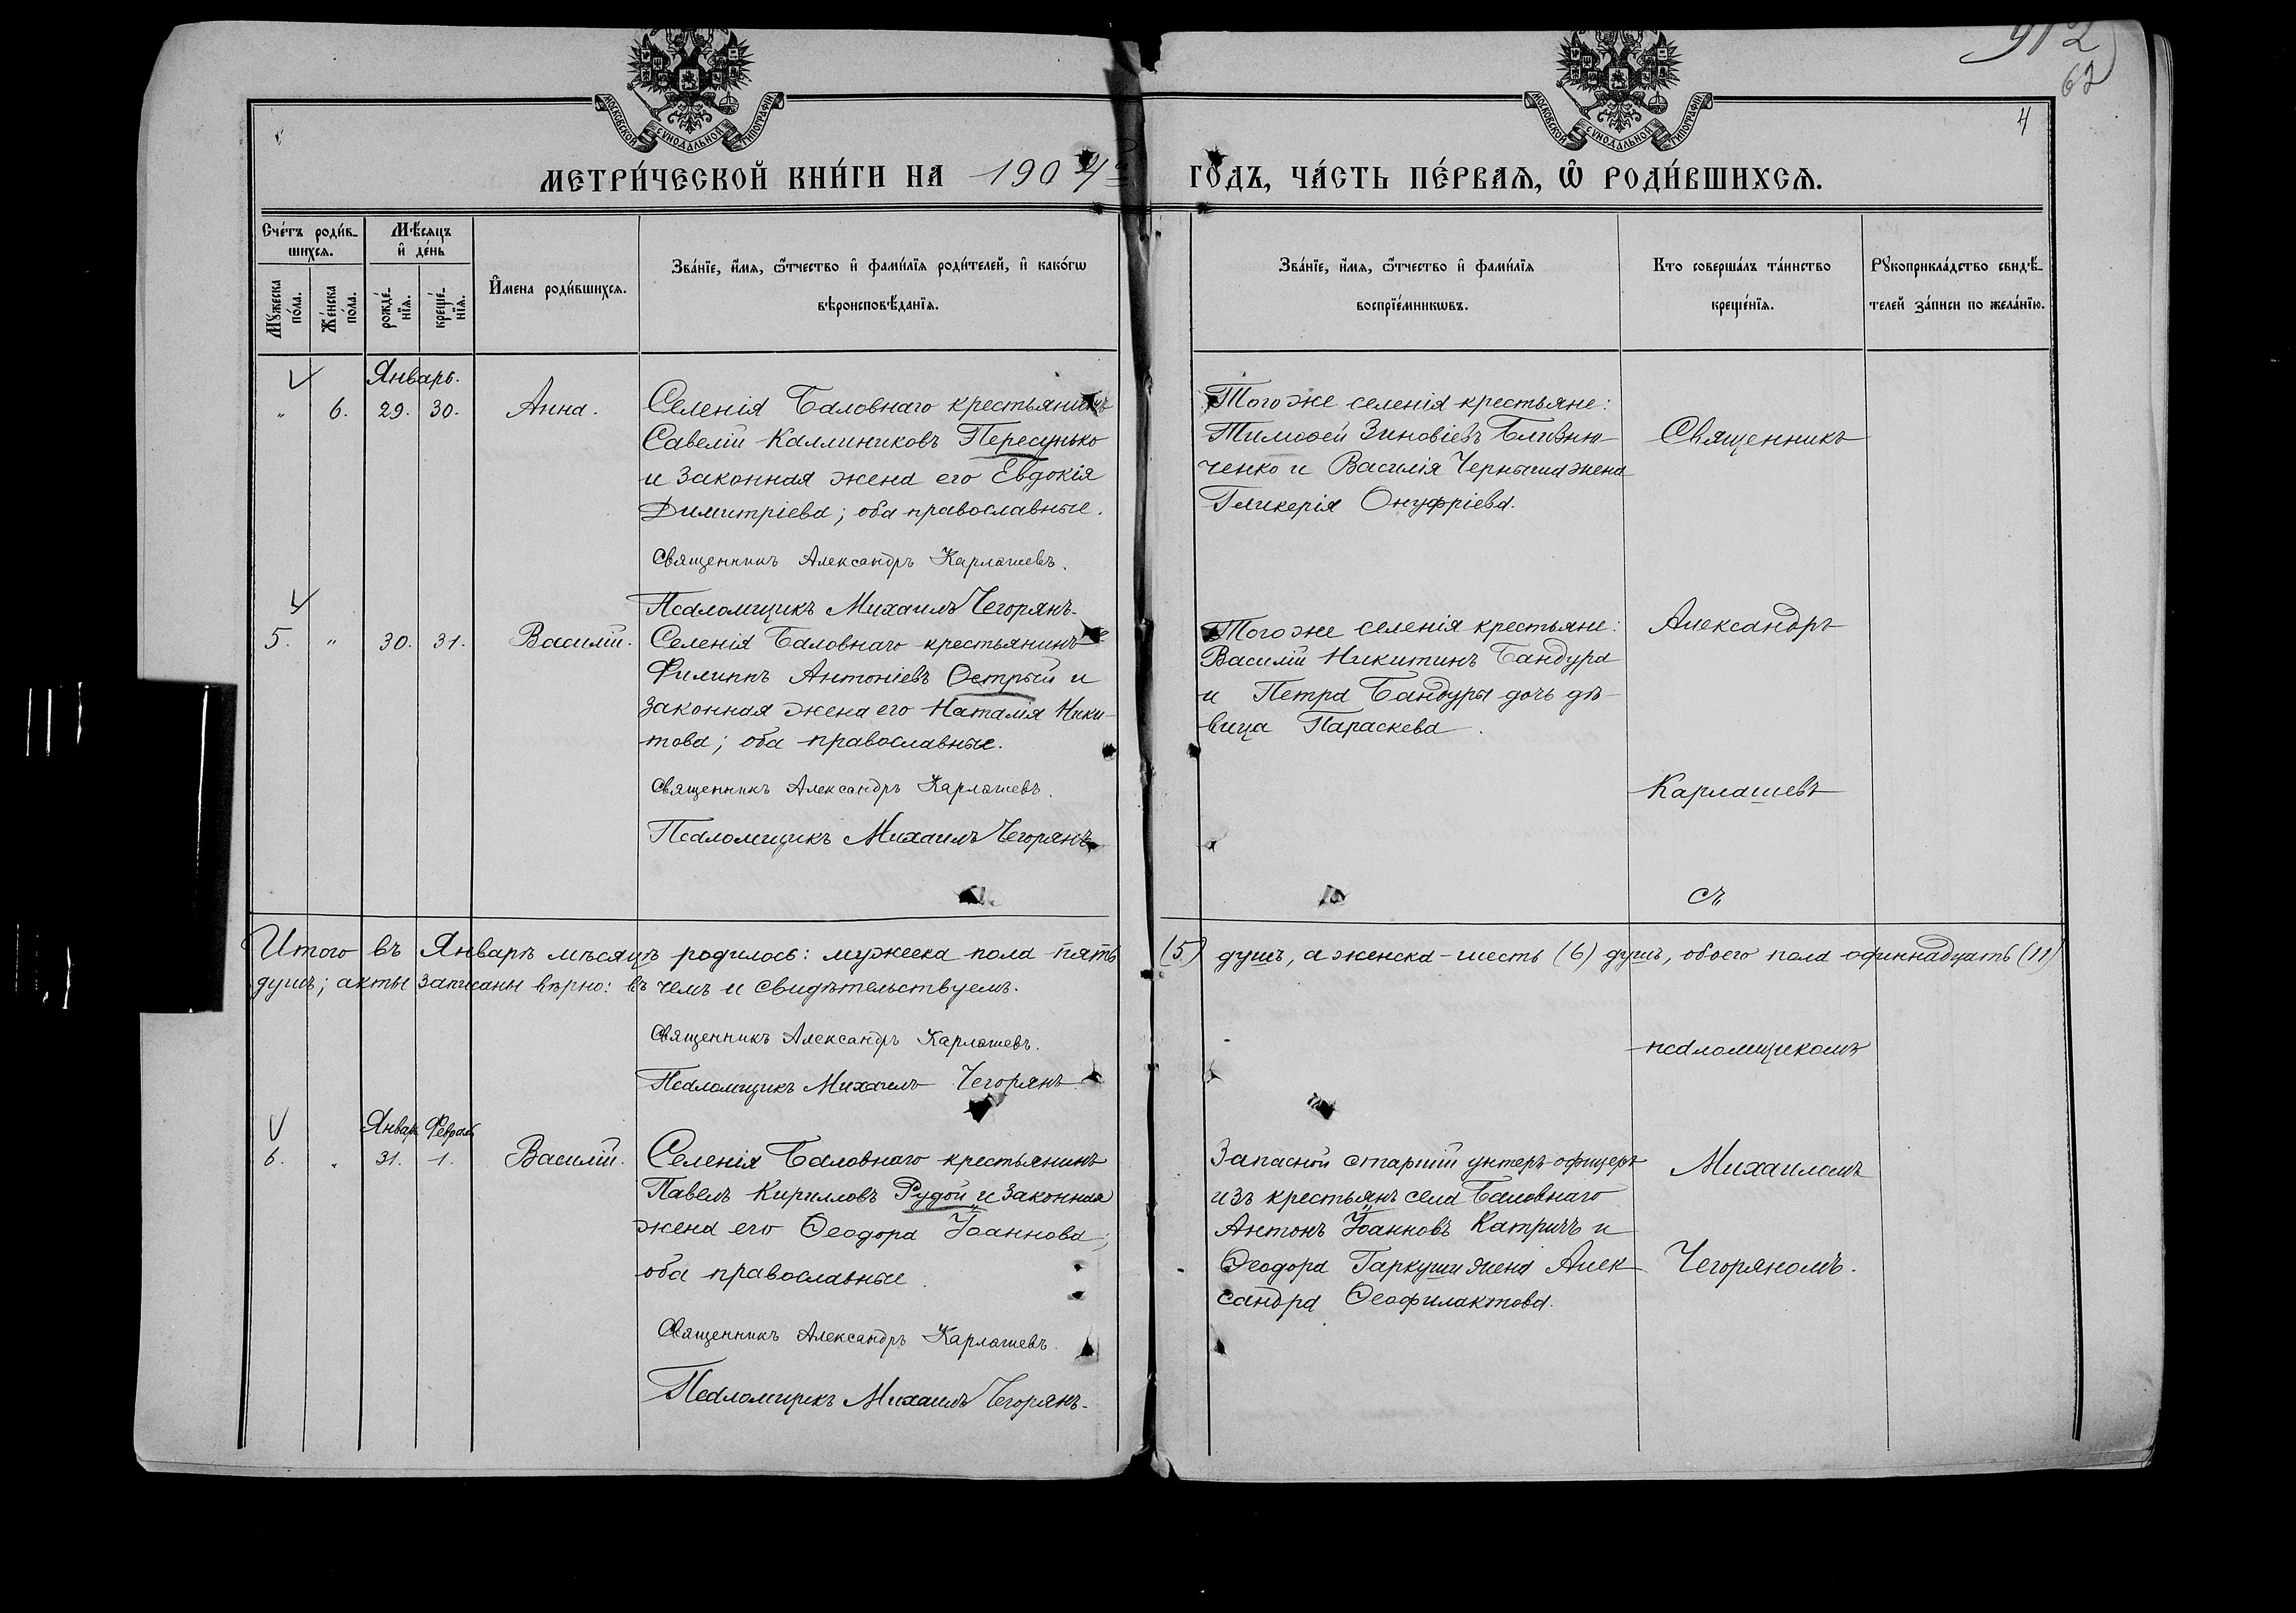 912
62
4
МОСКОВСКОЙ СѴНОДАЛЬНОЙ ТИПОГРАФІИ
МОСКОВСКОЙ СѴНОДАЛЬНОЙ ТИПОГРАФІИ
МЕТРИ́ЧЕСКОЙ КНИ́ГИ НА 1904й ГО́ДЪ, ЧА́СТЬ ПЕ́РВАѦ, Ѡ҆ РОДИ́ВШИХСѦ.
Сче́тъ роди́в-
шихсѧ.
Мѣ́сѧцъ
и҆ де́нь
Мꙋ́жеска
по́ла.
Же́нска
по́ла.
рожде́-
нїѧ.
креще́-
нїѧ.
И҆мена роди́вшихсѧ.
Зва́нїе, и҆́мѧ, ѻ҆́тчество и҆ фами́лїѧ роди́телей, и҆ како́гѡ
вѣроисповѣ́данїѧ.
Зва́нїе, и҆́мѧ, ѻ҆́тчество и҆ фами́лїѧ
воспрїе́мникѡвъ.
Кто соверша́лъ та́инство
креще́нїѧ.
Рꙋкоприкла́дство свидѣ́-
телей за́писи по жела́нїю.
Январь.
„ 6. 29. 30. Анна.
Селенія Баловнаго крестьянинъ
Савелій Каллиниковъ Пересунько
и законная жена его Евдокія
Димитріева; оба православные.
Священникъ Александръ Карлашевъ.
Псаломщикъ Михаилъ Чегорянъ.
Того же селенія крестьяне:
Тимофей Зиновіевъ Близню-
ченко и Василія Черныша жена
Гликерія Онуфріева.
Священникъ
5. „ 30. 31. Василій.
Селенія Баловнаго крестьянинъ
Филиппъ Антоніевъ Острый и
законная жена его Наталія Ники-
това; оба православные.
Священникъ Александръ Карлашевъ.
Псаломщикъ Михаилъ Чегорянъ
Того же селенія крестьяне:
Василій Никитинъ Бандура
и Петра Бандуры дочь дѣ-
вица Параскева.
Александръ
Карлашевъ
съ
Итого въ Январѣ мѣсяцѣ родилось: мужеска пола пять (5) душъ, а женска - шесть (6) душъ, обоего пола одиннадцать (11)
душъ; акты записаны вѣрно: въ чемъ и свидѣтельствуемъ.
Священникъ Александръ Карлашевъ.
Псаломщикъ Михаилъ Чегорянъ.
псаломщикомъ
Январ. Феврал.
6. „ 31. 1. Василій.
Селенія Баловнаго крестьянинъ
Павелъ Кирилловъ Рудой и законная
жена его Ѳеодора Іоаннова;
оба православные.
Священникъ Александръ Карлашевъ.
Псаломщикъ Михаилъ Чегорянъ.
Запасной старшій унтеръ-офицеръ
изъ крестьянъ села Баловнаго
Антонъ Іоанновъ Катричъ и
Ѳеодора Гаркуши жена Алек-
сандра Ѳеофилактова.
Михаиломъ
Чегоряномъ.